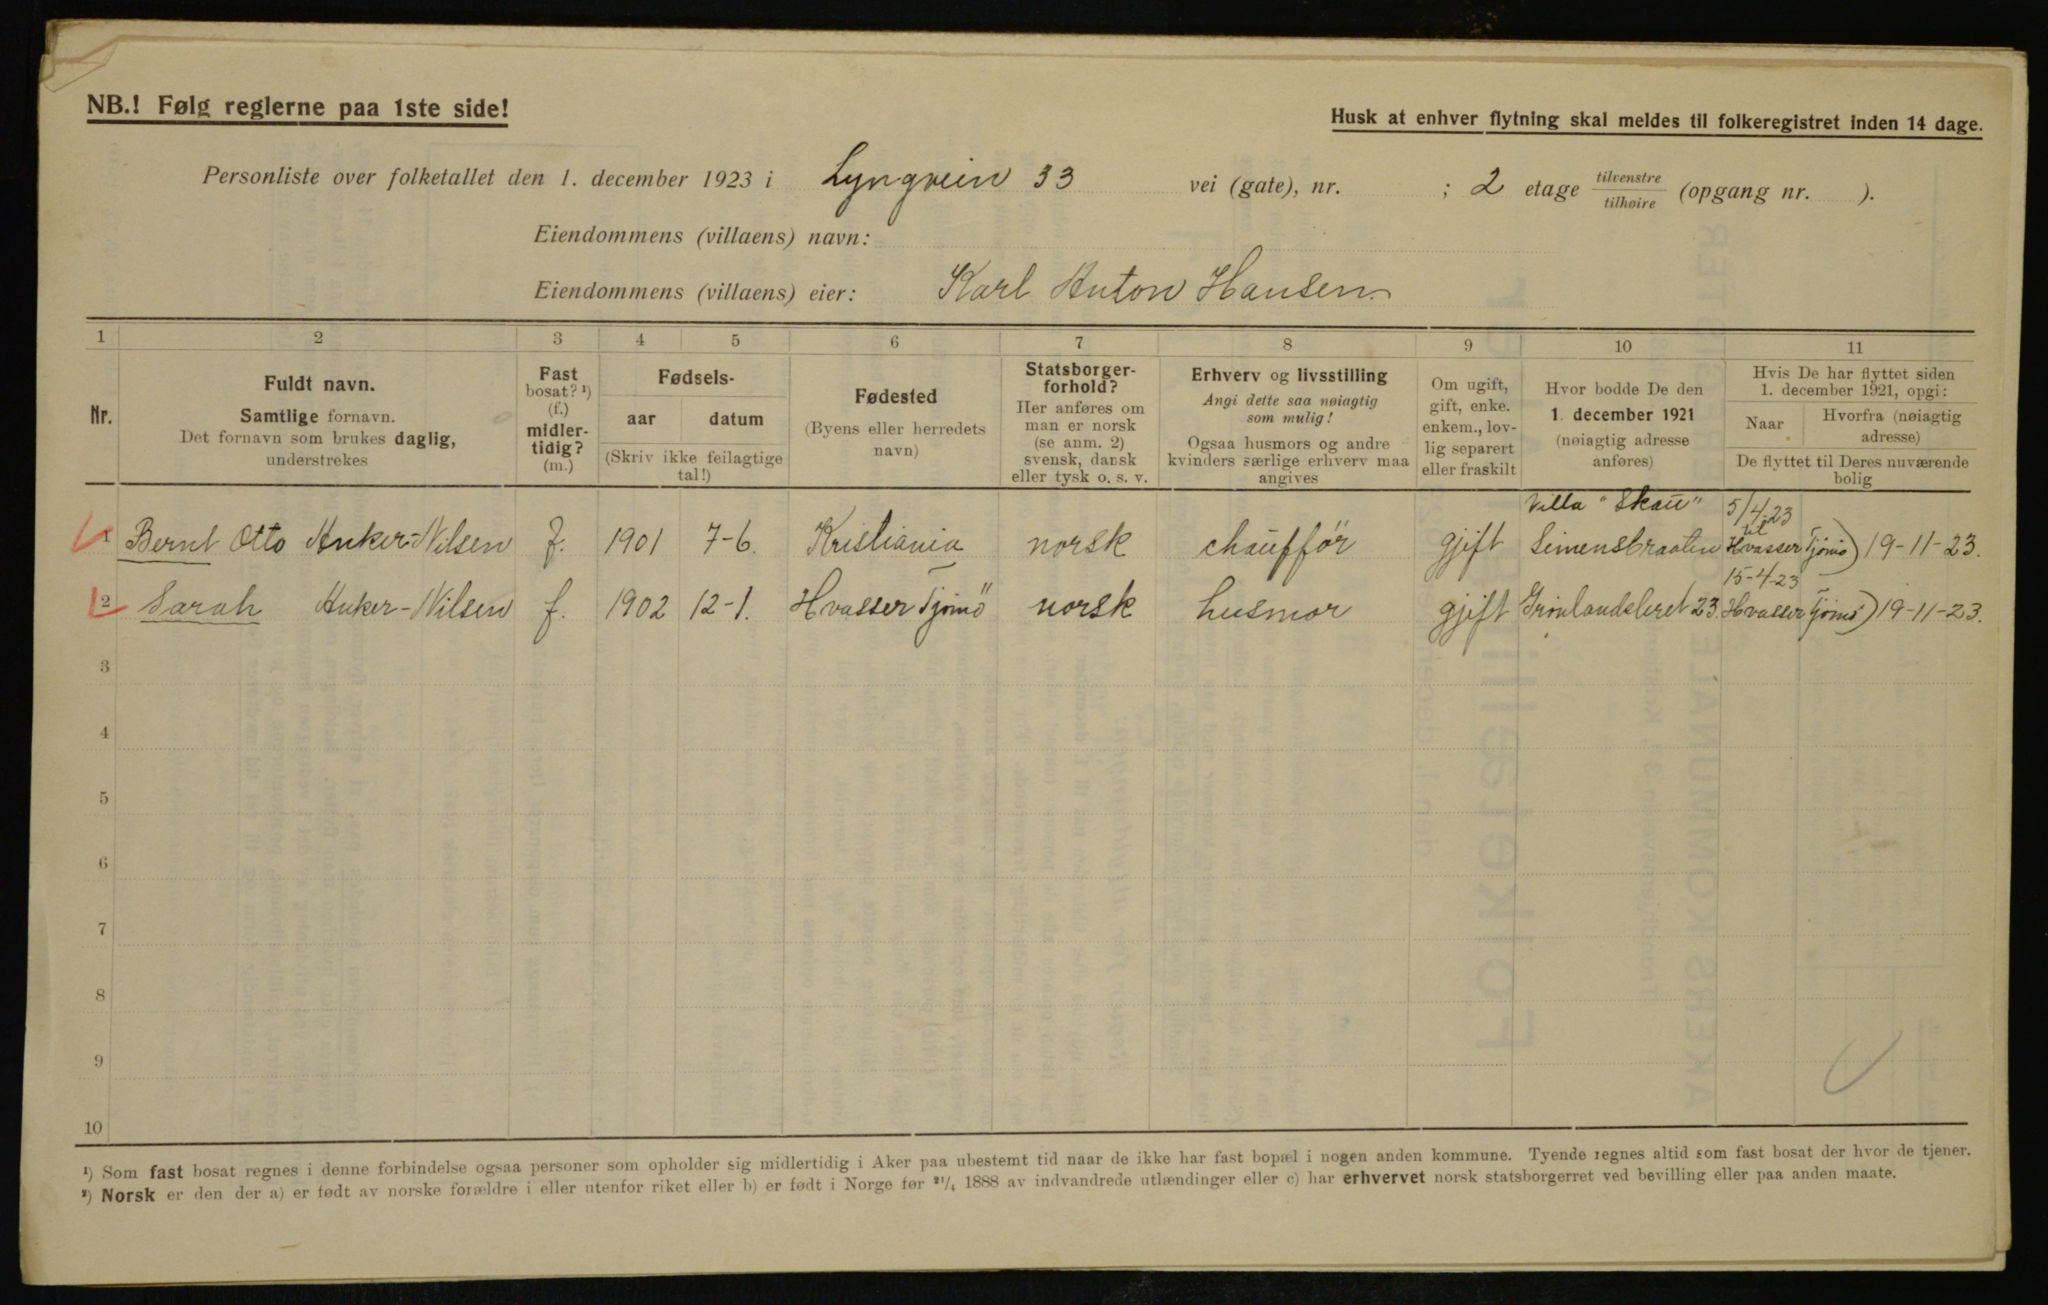 NB.! Følg reglerne paa 1ste side!
Husk at enhver flytning skal meldes til folkeregistret inden 14 dage.
Personliste over folketallet den 1. december 1923 i Lyngveien 33 vei (gate), nr. ; 2 etage tilvenstre/tilhøire (opgang nr. ).
Eiendommens (villaens) navn:
Eiendommens (villaens) eier: Karl Anton Hansen.
1 2 3 4 5 6 7 8 9 10 11
Nr.
Fuldt navn.
Samtlige fornavn.
Det fornavn som brukes daglig,
understrekes
Fast
bosat? ¹)
(f.)
midler-
tidig?
(m.)
Fødsels-
aar datum
(Skriv ikke feilagtige
tal!)
Fødested
(Byens eller herredets
navn)
Statsborger-
forhold?
Her anføres om
man er norsk
(se anm. 2)
svensk, dansk
eller tysk o. s. v.
Erhverv og livsstilling
Angi dette saa nøiagtig
som mulig!
Ogsaa husmors og andre
kvinders særlige erhverv maa
angives
Om ugift,
gift, enke.
enkem., lov-
lig separert
eller fraskilt
Hvor bodde De den
1. december 1921
(nøiagtig adresse
anføres)
Hvis De har flyttet siden
1. december 1921, opgi:
Naar
Hvorfra (nøiagtig
adresse)
De flyttet til Deres nuværende
bolig
Villa "Skau" 5/4-23
til
1 Bernt Otto Anker-Nilsen f. 1901 7-6. Kristiania norsk chaufför gjift Simensbraaten Hvasser Tjömö) 19-11-23.
15-4-23
2 Sarah Anker-Nilsen f. 1902 12-1. Hvasser Tjömö norsk husmor gjift Grønlandsleret 23 Hvasser Tjömö) 19-11-23.
3
4
5
6
7
8
9
10
¹) Som fast bosat regnes i denne forbindelse ogsaa personer som opholder sig midlertidig i Aker paa ubestemt tid naar de ikke har fast bopæl i nogen anden kommune. Tyende regnes altid som fast bosat der hvor de tjener.
²) Norsk er den der a) er født av norske forældre i eller utenfor riket eller b) er født i Norge før ²¹/₄ 1888 av indvandrede utlændinger eller c) har erhvervet norsk statsborgerret ved bevilling eller paa anden maate.